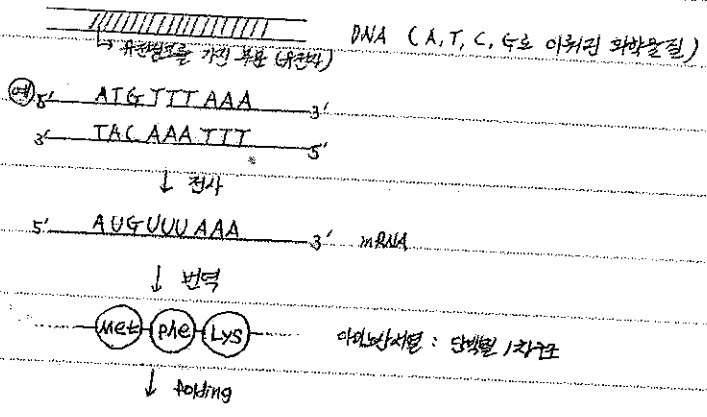 DNA (A, T, C, G로 이뤄진 화학물질)
↳ 유전정보를 가진 부분 (유전자)
예 5' ATG TTT AAA 3'
3' TAC AAA TTT 5'
↓ 전사
5' AUG UUU AAA 3' mRNA
↓ 번역
Met Phe Lys 아미노산서열 : 단백질 1차구조
↓ folding